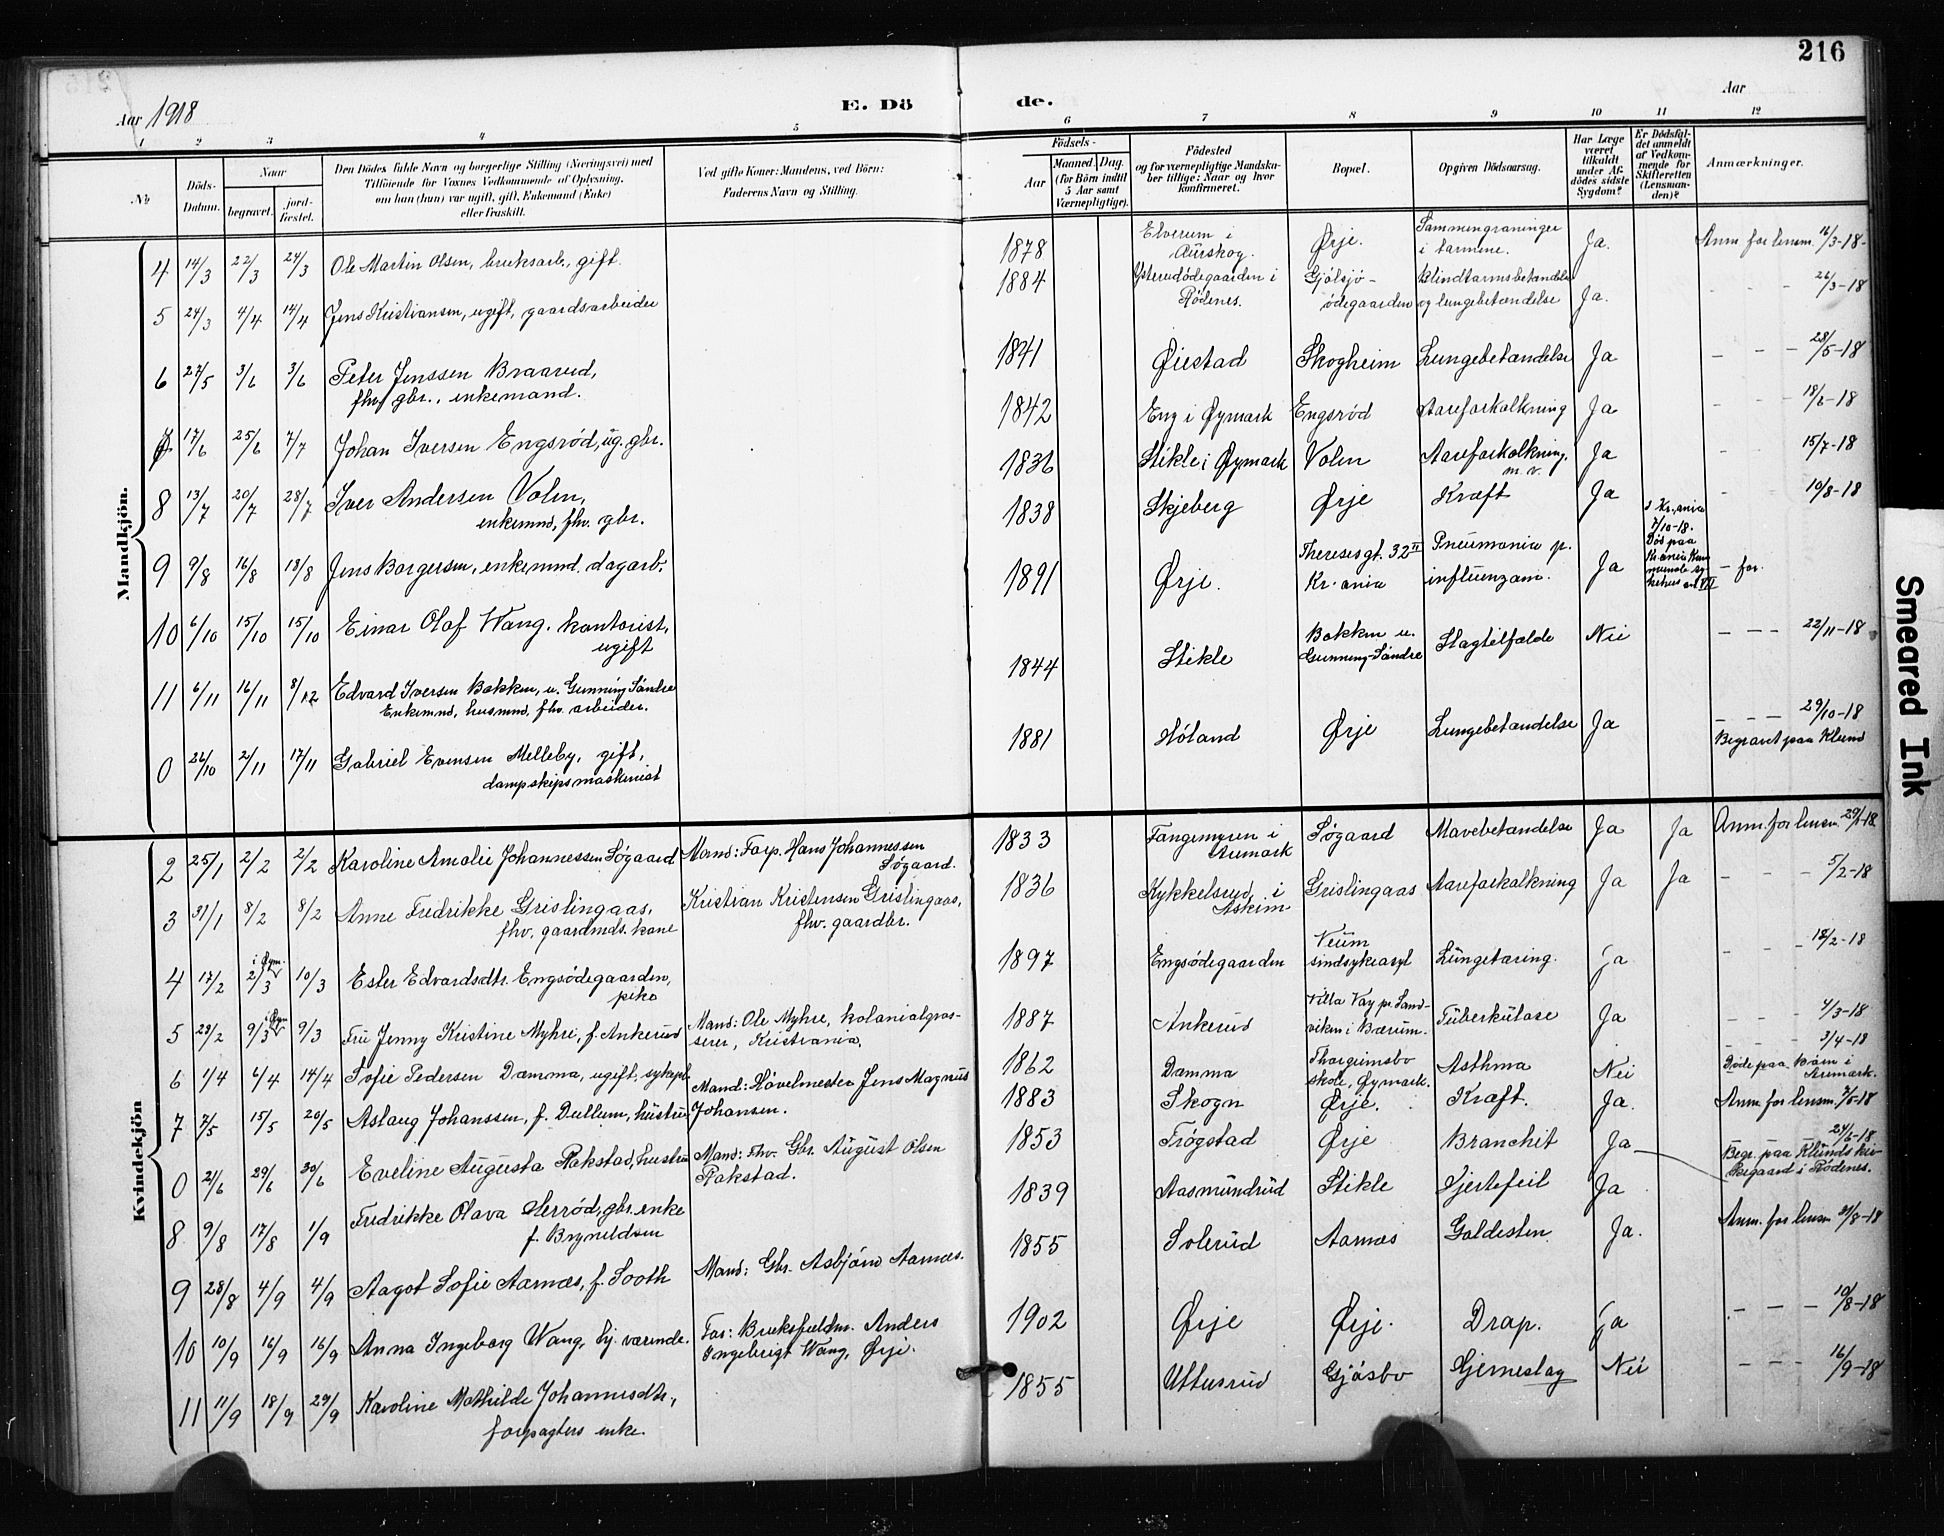 216
Aar 1918
E. Döde.
Aar
1 2 3 4 5 6 7 8 9 10 11 12
No
Döds-Datum.
Naar
begravet.
jord-fæstet.
Den Dödes fulde Navn og borgerlige Stilling (Næringsvei) med
Tilföiende for Voxnes Vedkommende af Oplysning,
om han (hun) var ugift, gift, Enkemand (Enke)
eller fraskilt.
Ved gifte Koner: Mandens, ved Börn:
Faderens Navn og Stilling.
Födsels-
Aar
Maaned. Dag.
(for Börn indtil
5 Aar samt
Værnepligtige).
Födested
og for værnepligtige Mandska-
ber tillige: Naar og hvor
konfirmeret.
Bopæl.
Opgiven Dödsaarsag.
Har Læge
været
tilkaldt
under Af-
dödes sidste
Sygdom?
Er Dödsfal-
det anmeldt
af Vedkom-
mende for
Skifteretten
(Lensman-
den)?
Anmærkninger.
Mandkjön.
4 14/3 22/3 24/3 Ole Martin Olsen, bruksarb., gift. 1878 Elverum i Aurskog. Ørje. Sammengroninger i tarmene. Ja. Anm. for lensm. 16/3-18
5 24/3 4/4 14/4 Jens Kristiansen, ugift, gaardsarbeider 1884 Ysterudødegaarden i Rødenes. Gjølsjø-ødegaarden Blindtarmsbetændelse og lungebetændelse Ja. - - - 26/3-18
6 27/5 3/6 3/6 Peter Jenssen Braarud, fhv. gbr., enkemand. 1841 Øiestad Skogheim Lungebetændelse Ja - - - 28/5-18
7 17/6 25/6 7/7 Johan Iversen Engsrød, ug. gbr. 1842 Eng i Øymark Engsrød Aareforkalkning Ja - - - 18/6-18
8 13/7 20/7 28/7 Iver Andersen Volen, enkemnd, fhv. gbr. 1836 Stikle i Øymark Volen Aareforkalkning, m. v. Ja - 15/7-18
9 9/8 16/8 18/8 Jens Borgersen, enkemnd. dagarb. 1838 Skjeberg Ørje Kræft Ja - 10/8-18
10 6/10 15/10 15/10 Einar Olaf Wang. kontorist, ugift 1891 Ørje. Theresesgt. 32 II Kr.ania Pneumonia p. influenzam. Ja i Kr.ania 7/10-18. Død paa Kr.ania Kommunale sykehus avd VII - for.
11 6/11 16/11 8/12 Edvard Iversen Bakken, u. Gunning Søndre Enkemnd, husmnd, fhv. arbeider. 1844 Stikle Bakken u. Gunning Søndre Slagtilfælde Nei - - - 22/11-18
0 26/10 2/11 17/11 Gabriel Evensen Melleby, gift, dampskipsmaskinist 1881 Høland Ørje Lungebetændelse Ja - - - 29/10-18 Begravet paa Klund
Kvindekjön
2 25/1 2/2 2/2 Karoline Amalie Johannessen Søgaard Mand: Forp. Hans Johannessen Søgaard. 1833 Tangemyren i Aremark Søgaard Mavebetændelse Ja Ja Anm. for lensm. 29/1-18
3 31/1 8/2 8/2 Anne Fredrikke Grislingaas, fhv. gaardmds. kone Kristian Kristensen Grislingaas, fhv. gaardbr. 1836 Kykkelsrud i Askim Grislingaas Aareforkalkning Ja Ja - - - 5/2-18
4 17/2 2/3 i Øym. 10/3 Ester Edvardsdtr. Engsødegaarden, pike 1897 Engsødegaarden Neum sindsykeasyl Lungetæring. Ja - 18/2-18
5 28/2 9/3 i Øym 9/3 Fru Jenny Kristine Myhre, f. Ankerud Mand: Ole Myhre, kolonialgrosserer, Kristiania. 1887 Ankerud Villa Vay pr. Sandviken i Bærum. Tuberkulose Ja - - - 4/3-18
6 1/4 6/4 14/4 Sofie Pedersen Damma, ugift, sykepl. 1862 Damma Thorgrimsbo skole, Øymark. Asthma Nei - - - 3/4-18 Døde paa Kåen i Aremark.
7 7/5 15/5 20/5 Aslaug Johanssen, f. Dullum, hustru Mand: Høvelmester Jens Magnus Johansen. 1883 Skogn Ørje. Kræft. Ja. Anm. for lensm. 7/5-18
0 21/6 29/6 30/6 Eveline Augusta Rakstad, hustru Mand: Fhv. Gbr. August Olsen Rakstad. 1853 Trøgstad Ørje Bronchit Ja - - - 24/6-18 Begr. paa Klunds kirkegaard i Rødenes.
8 9/8 17/8 1/9 Fredrikke Olava Herrød, gbr. enke f. Bryneldsen 1839 Aasmundrud Stikle Hjertefeil Ja Anm. for lensm 31/8-18
9 28/8 4/9 4/9 Aagot Sofie Aarnæs, f. Sooth Mand: Gbr. Asbjørn Aarnæs. 1855 Solerud Aarnæs Galdesten Ja.
10 10/9 16/9 16/9 Anna Ingeborg Wang, hj. værende. Far: Bruksfuldm. Anders Ingebrigt Wang, Ørje. 1902 Ørje Ørje. Drap. Ja - - - 10/8-18
11 11/9 18/9 29/9 Karoline Mathilde Johannesdtr., forpagters enke. 1855 Uttusrud Gjøsbo Hjerneslag Nei - - - 16/9-18
Smeared Ink